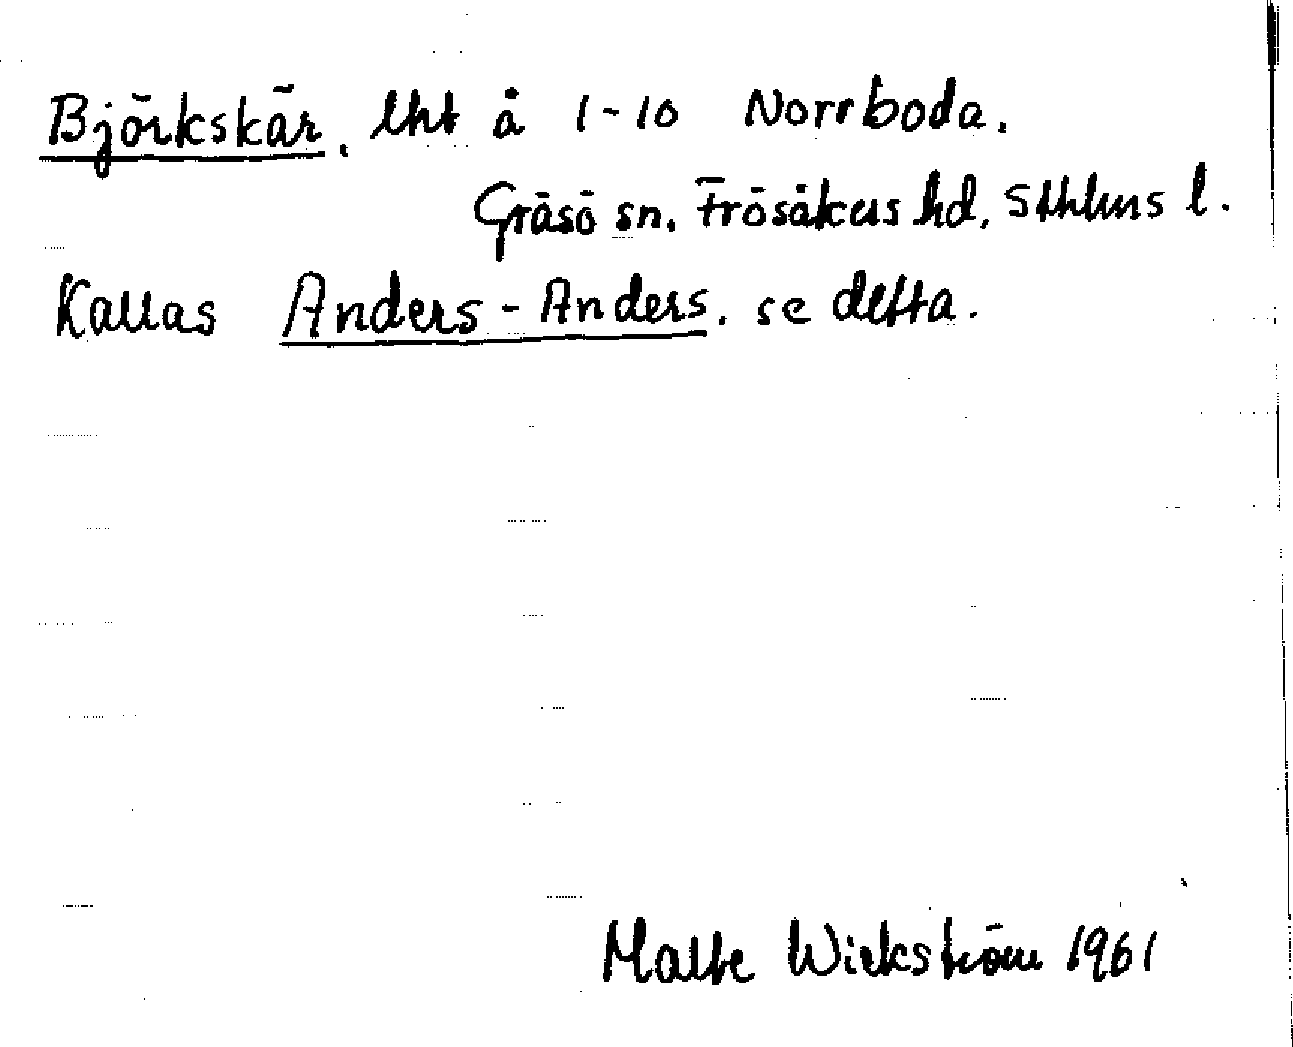 Björkskär, lht å 1-10 Norrboda.
Gräsö sn. Frösåkers hd, Sthlms l.
Kallas Anders-Anders, se detta.
Malte Wickström 1961